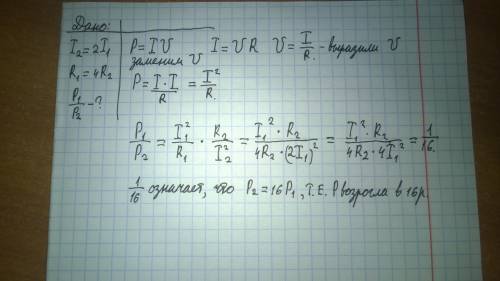 Дано:
I₂=2I₁
R₁=4R₂
P₁/P₂ - ?
P=IU I=UR U=I/R - выразили U
заменим U
P=I·I/R = I²/R.
P₁/P₂ = I₁²/R₁ · R₂/I₂² = I₁²·R₂/4R₂·(2I₁)² = I₁²·R₂/4R₂·4I₁² = 1/16.
1/16 означает, что P₂=16P₁, т.е. P возрогла в 16р.